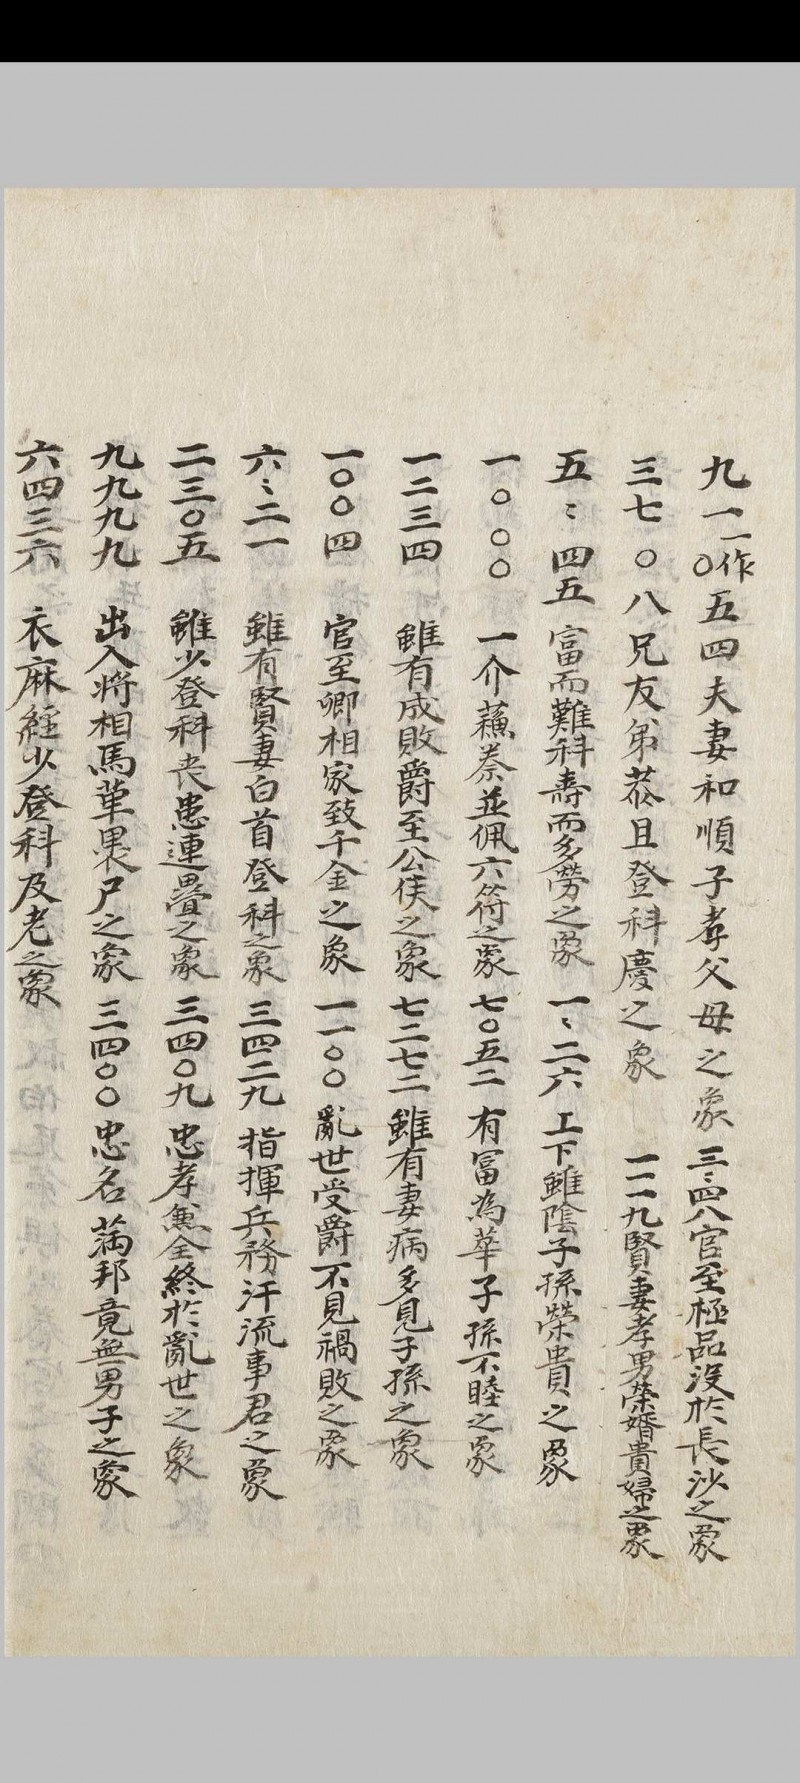 九一二作〇五四夫妻和順子孝父母之象 三〻四八官至極品没於長沙之象
三七〇八兄友弟恭且登科慶之象 一一一九賢妻孝男榮婚貴婦之象
五〻四五富而難科壽而多勞之象 一〻二六工下雖陰子孫榮貴之象
一〇〇〇一介蘓秦並佩六符之象 七〇五二有富為華子孫不睦之象
一二三四雖有成敗爵至公侯之象 七二七二雖有妻病多見子孫之象
一〇〇四官至卿相家致千金之象 一一〇〇亂世受爵不見禍敗之象
六〻二一雖有賢妻白首登科之象 三四二九指揮兵務汗流事君之象
二三〇五雖少登科丧患連疊之象 三四〇九忠孝兼全終於亂世之象
九九九九出入將相馬革裹尸之象 三四〇〇忠名滿邦竟無男子之象
六四三六衣麻經少登科及老之象